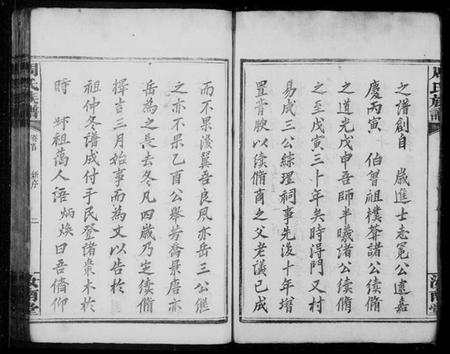 之譜創自 歲進士志冕公遠嘉
慶丙寅 伯曾祖樸菴諸公續脩
之道光戊申吾師半曦諸公續脩
之至戊寅三十年矣時得門又村
易成三公綜理祠事先後十年增
置膏腴以續脩商之父老議已成
而不果浚翼吾良夙亦岳三公繼
之亦不果乙酉公舉芳喬景唐亦
岳為之長去冬凡四歲乃定續脩
擇吉三月始事而為文以告於
祖仲冬譜成付手民登諸棗木於
時 祖蔼人語 炳煥曰吾儕仰
周氏族譜
卷首 新序 二
汝南堂
周氏族譜
汝南堂